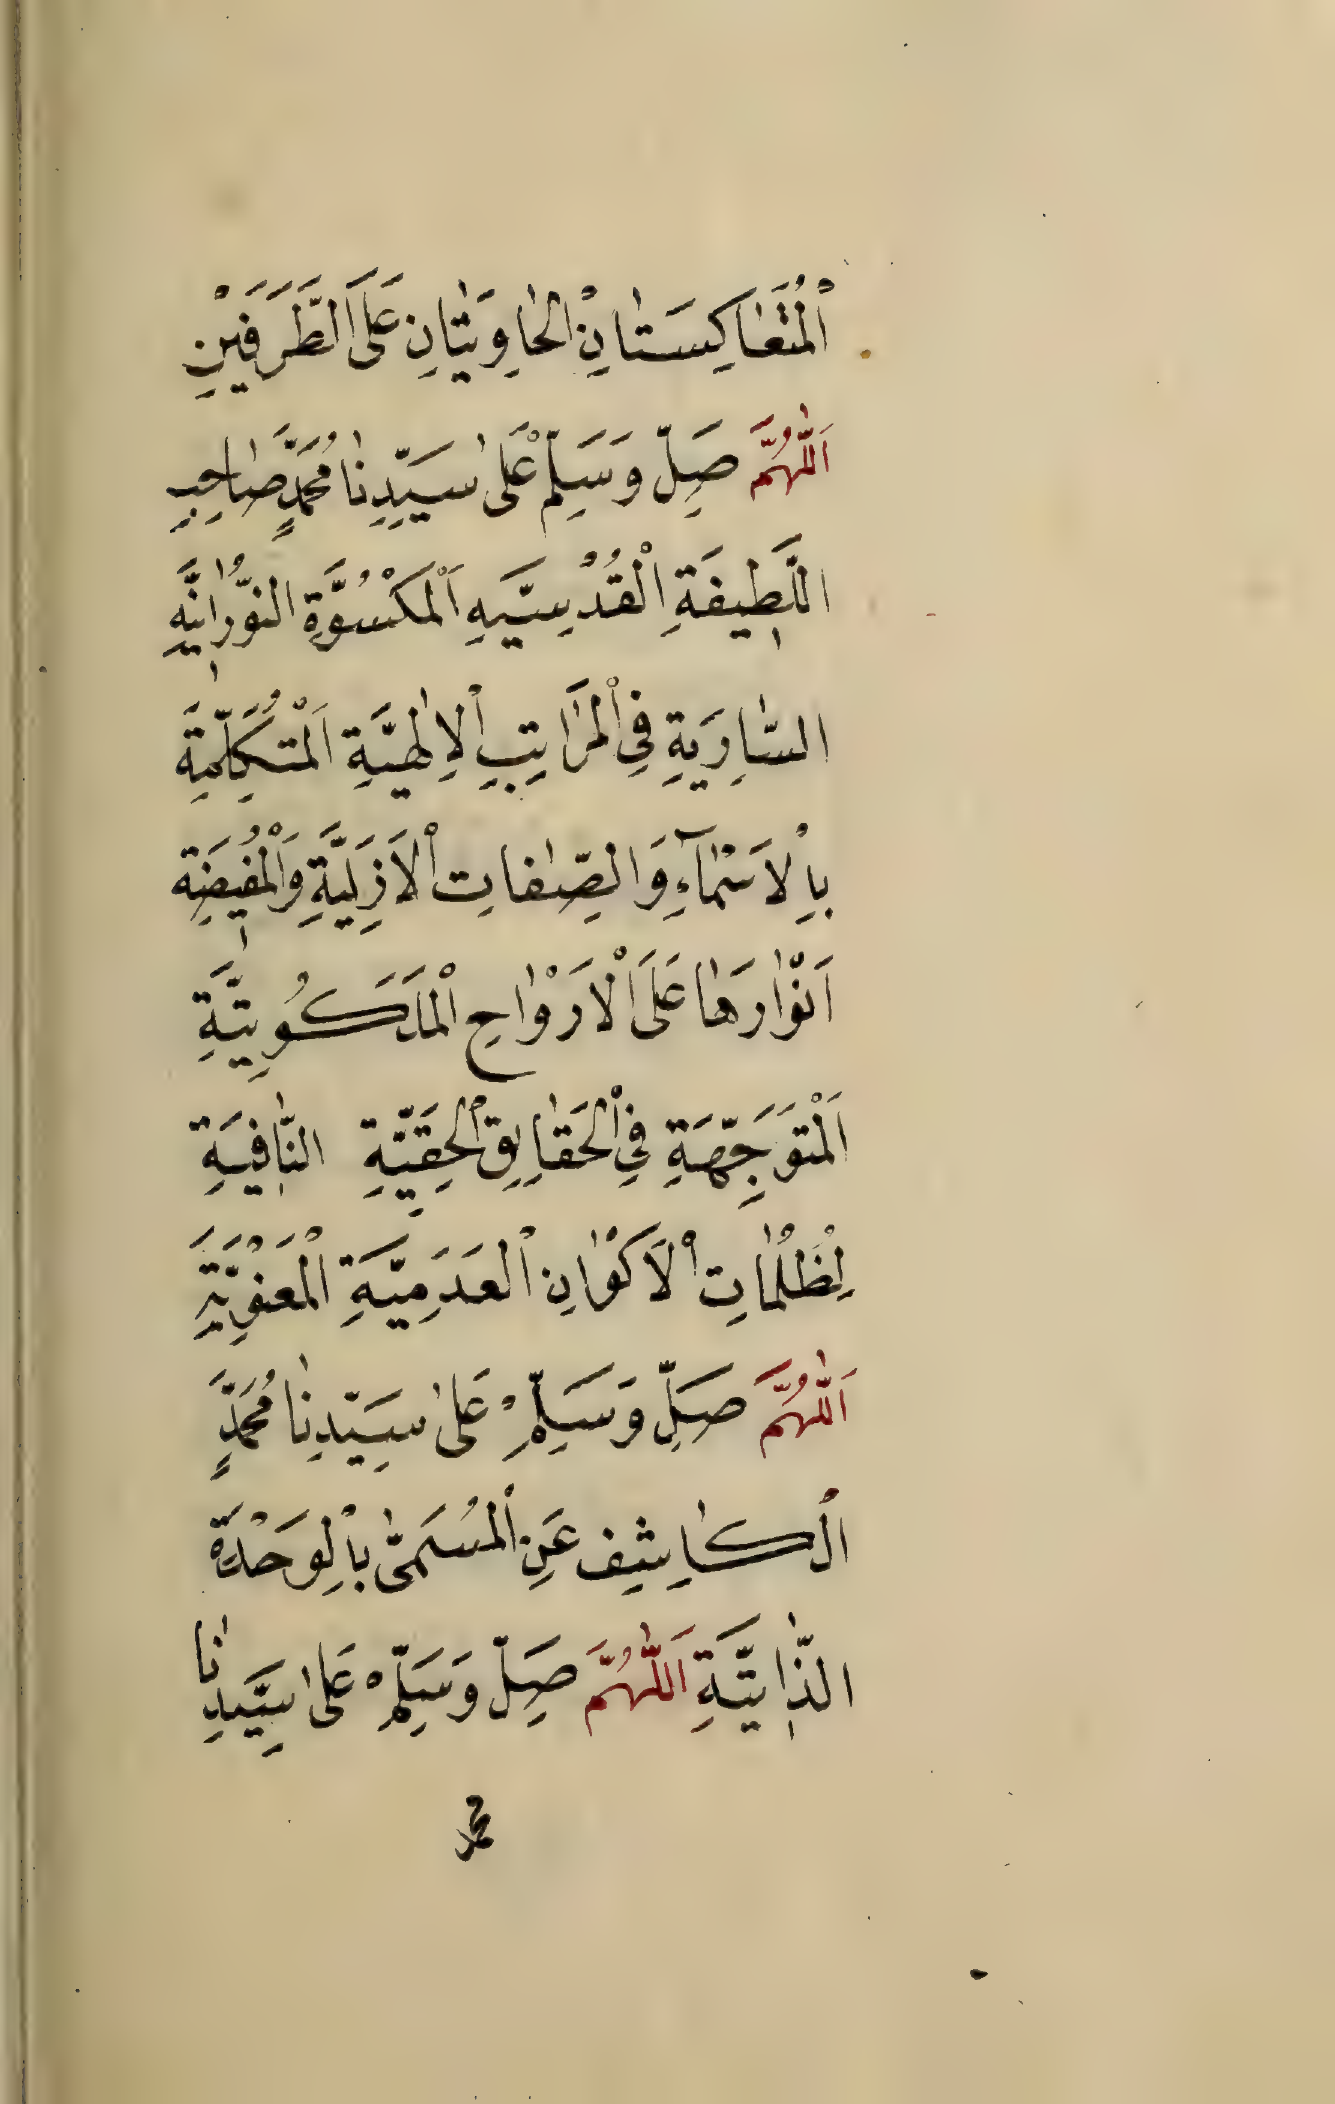 اَلْمُتَعَاكِسَتَانِ الْحَاوِيَتَانِ عَلَى الطَّرَفَيْنِ
اَللّٰهُمَّ صَلِّ وَسَلِّمْ عَلٰى سَيِّدِنَا مُحَمَّدٍ صَاحِبِ
اللَّطِيفَةِ الْقُدْسِيَّهِ اَلْمَكْسُوَّةِ النُّورَانِيَّهِ
السَّارِيَةِ فِي الْمَرَاتِبِ الْاِلٰهِيَّةِ اَلْمُتَكَلِّمَةِ
بِالْاَسْمَآءِ وَالصِّفَاتِ الْاَزِلِيَّةِ وَالْمُفِيضَةِ
اَنْوَارَهَا عَلَى الْاَرْوَاحِ الْمَلَكُوتِيَّةِ
اَلْمُتَوَجِّهَةِ فِي الْحَقَايِقِ الْحَقِّيَّةِ النَّافِيَةِ
لِظُلُمَاتِ الْاَكْوَانِ الْعَدَمِيَّةِ الْمَعْنَوِيَّةِ
اَللّٰهُمَّ صَلِّ وَسَلِّمْ عَلٰى سَيِّدِنَا مُحَمَّدٍ
الْكَاشِفِ عَنِ الْمُسَمّٰى بِالْوَحْدَةِ
الذَّاتِيَّةِ اَللّٰهُمَّ صَلِّ وَسَلِّمْ عَلٰى سَيِّدِنَا
محمد